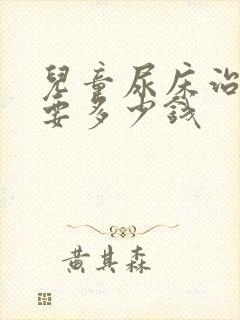 兒童尿床治
要多少錢
黃其森